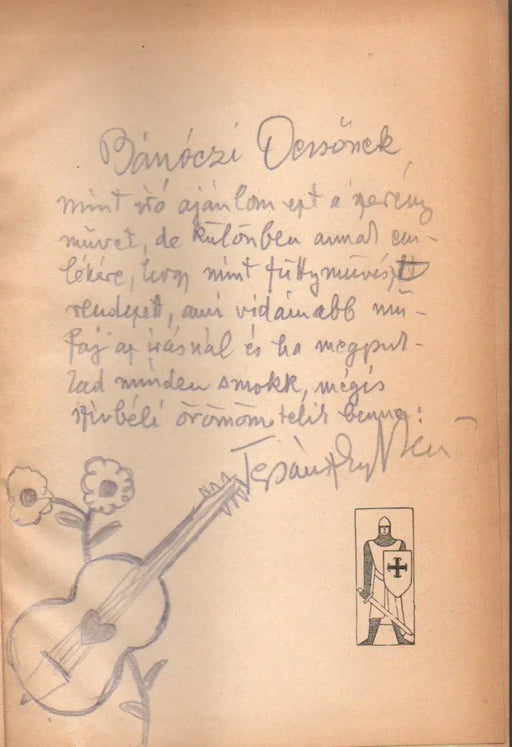 Bánóczi Dezsőnek,
mint író ajánlom ezt a szerény
művet, de különben annak em-
lékére, hogy mint füttyművészt
rendezett, ami vidámabb mű-
faj az írásnál és ha megpuk-
kad minden smokk, mégis
szívbéli örömöm telik benne:
Tersánszky